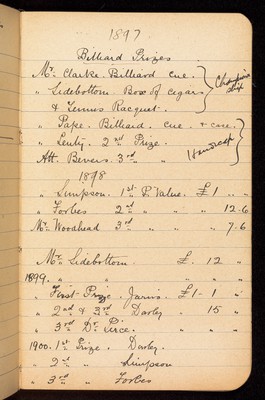 1897
Billiard Prizes
Mr. Clarke. Billiard Cue.
" Sidebottom. Box of Cigars
& Tennis Racquet.
Championship
" Pape. Billiard. Cue. & case.
" 2nd Prize.
Att. Bevers. 3rd "
Handicap
1898
" Simpson. 1st P. Value. £1 " "
" Forbes 2nd " " " 12-6
Mr. Woodhead 3rd " " " 7-6
Mr. Sidebottom. £. 12 "
1899. " " " "
" First-Prize. Jarvis. £1-1 "
" 2nd & 3rd Darley. " 15 "
" 3rd Dr. Pirce. " "
1900. 1st Prize. Darley.
" 2nd " Simpson
" 3rd " Forbes